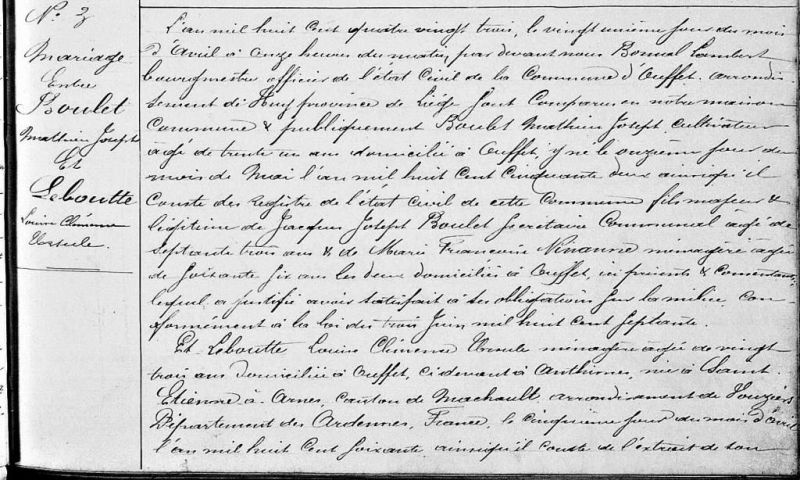 N° 3
Mariage
Entre
Boulet
Mathieu Joseph
Et
Leboutte
Louise Clémence
Ursule.
L'an mil huit cent quatre vingt trois, le vingt unième jour du mois
d'Avril à onze heures du matin, par devant nous Bonsal Lambert
bourgmestre officier de l'état Civil de la Commune d'Ouffet, arrondis-
sement de Huy province de Liége sont Comparus en notre maison
Commune & publiquement Boulet Mathieu Joseph, Cultivateur
agé de trente un ans domicilié à Ouffet, y né le onzième jour du
mois de Mai l'an mil huit Cent Cinquante deux ainsi qu'il
Conste des registre de l'état civil de cette Commune fils majeur &
légitime de Jacques Joseph Boulet Secrétaire Communal agé de
Septante trois ans & de Marie Françoise Ninanne ménagère agée
de Soixante six ans les deux domiciliés à Ouffet, ici présents & Consentants,
lequel a justifié avoir satisfait à ses obligations sur la milice, Con-
formément à la loi du trois Juin mil huit Cent Septante.
Et Leboutte Louise Clémence Ursule ménagère agée de vingt
trois ans domiciliée à Ouffet, cidevant à Anthinnes, née à Saint
Etienne à Arnes, Canton de Machault, arrondissement de Vouziers
Département des Ardennes, France, le cinquième jour du mois d'avril
l'an mil huit Cent Soixante, ainsi qu'il conste de l'extrait de son